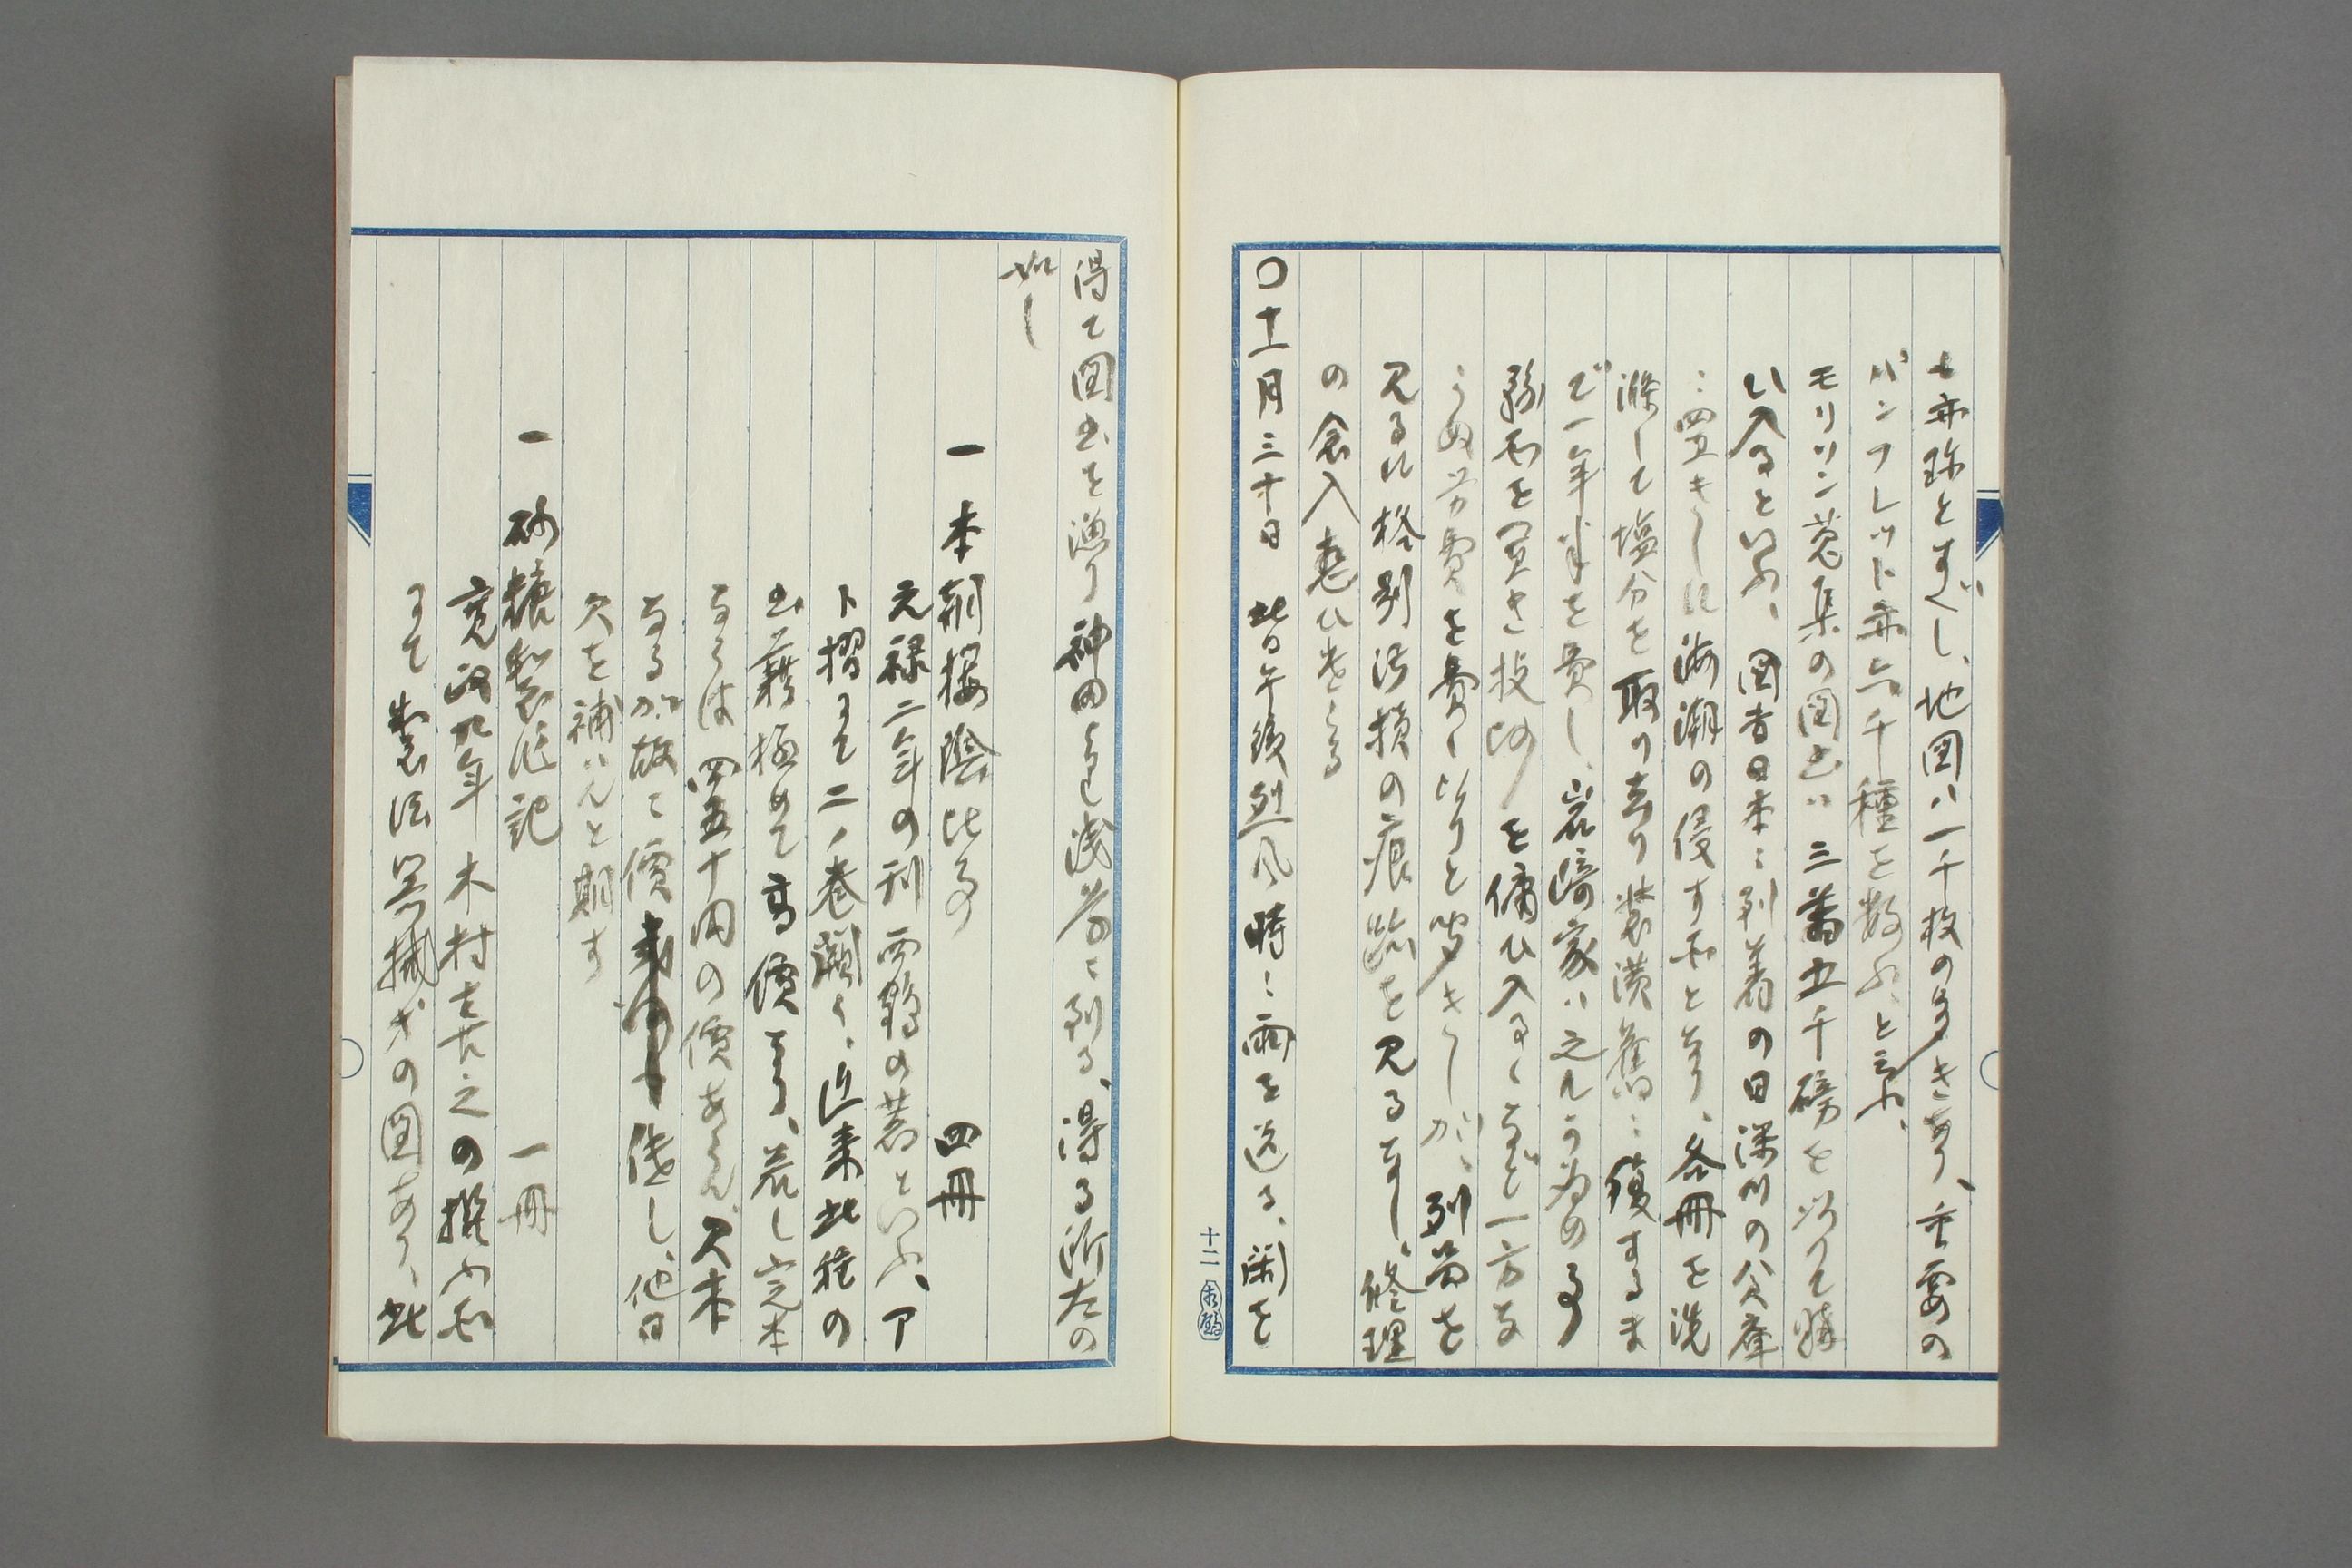 も亦珍とすべし、地図ハ一千枚の多きあり、重要の
パンフレット亦六千種を数ふ、と云ふ、
モリソン蒐集の図書ハ三萬五千磅を以て購
ひ入るといふ、図書日本ニ到着の日深川の倉庫
ニ置きしに海潮の侵す所となり、各冊を洗
滌して塩分を取り去り装潢舊ニ復するま
で一年半を費し、岩崎家ハ之れが為め
を買き を傭ひ入るゝなど一方な
らぬ労費を費くせりと聞きしが、到る
見るに格別汚損の痕跡を見るなし、修理
の念入
〇十一月三十日 此日午後烈風時ニ雨を送る、閑を
十二
得て図書を漁り神田より浅草ニ到る、得る所左の
如し
一 本朝桜陰比事 四冊
元禄二年の刊西鶴の著といふ、ア
ト摺にて二ノ巻闕く、近来此種の
書籍極めて高價なり、若し完本
ならは四五十円の價あらん、欠本
なるが故に價 低し、他日
欠を補はんと期す
一 砂糖製作記 一冊
寛政九年木村喜之の撰ふ所
にて製法器械等の図あり、此